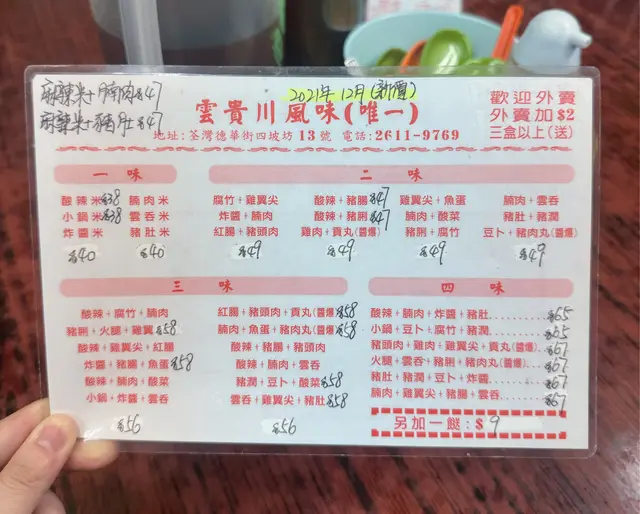 麻辣米+腩肉$47
麻辣米+豬肚$47
2021年12月(新價)
雲貴川風味(唯一)
地址:荃灣德華街四坡坊13號 電話:2611-9769
歡迎外賣
外賣加$2
三盒以上(送)
一味
酸辣米$38 腩肉米
小鍋米$38 雲吞米
炸醬米 豬肚米
$40 $40
二味
腐竹+雞翼尖 酸辣+豬腸$47 雞翼尖+魚蛋 腩肉+雲吞
炸醬+腩肉 酸辣+豬脷$47 腩肉+酸菜 豬肚+豬潤
紅腸+豬頭肉 雞肉+貢丸(醬爆) 豬脷+腐竹 豆卜+豬肉丸(醬爆)
$49 $49 $49 $49
三味
酸辣+腐竹+腩肉 紅腸+豬頭肉+貢丸(醬爆)$58
豬脷+火腿+雞翼$58 腩肉+魚蛋+豬肉丸(醬爆)$58
酸辣+雞翼尖+紅腸 酸辣+豬腸+豬頭肉
炸醬+豬腸+魚蛋$58 酸辣+腩肉+雲吞
酸辣+腩肉+酸菜 豬潤+豆卜+酸菜$58
小鍋+炸醬+雲吞 雲吞+雞翼尖+豬肚$58
$56 $56
四味
酸辣+腩肉+炸醬+豬肚..........$65
小鍋+豆卜+腐竹+豬潤..........$65
豬頭肉+雞肉+雞翼尖+貢丸(醬爆)$67
火腿+雲吞+豬脷+豬肉丸(醬爆)...$67
豬肚+豬潤+豆卜+炸醬..........$67
腩肉+雞翼尖+豬腸+雲吞........$67
另加一餸:$9